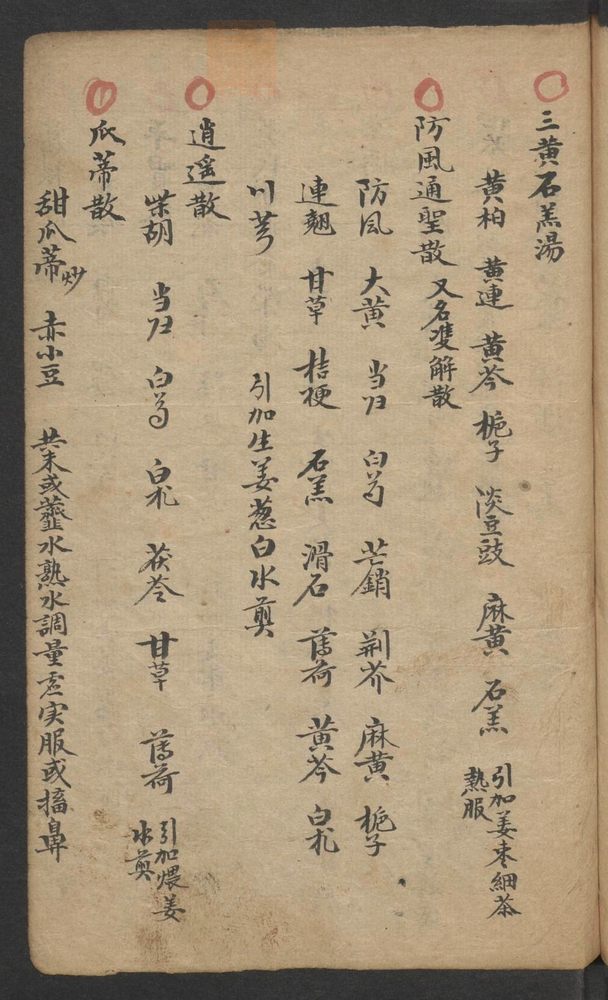 三黄石羔湯
黄柏 黄連 黄芩 梔子 淡豆豉 麻黄 石羔 引加姜枣細茶熱服
防風通聖散 又名雙解散
防风 大黄 当归 白芍 芒銷 荆芥 麻黄 梔子
連翹 甘草 桔梗 石羔 滑石 薄荷 黄芩 白朮
川芎 引加生姜葱白水煎
逍遥散
柴胡 当归 白芍 白朮 茯苓 甘草 薄荷 引加煨姜水煎
瓜蒂散
甜瓜蒂炒 赤小豆 共末或虀水熟水調量虚实服或搐鼻